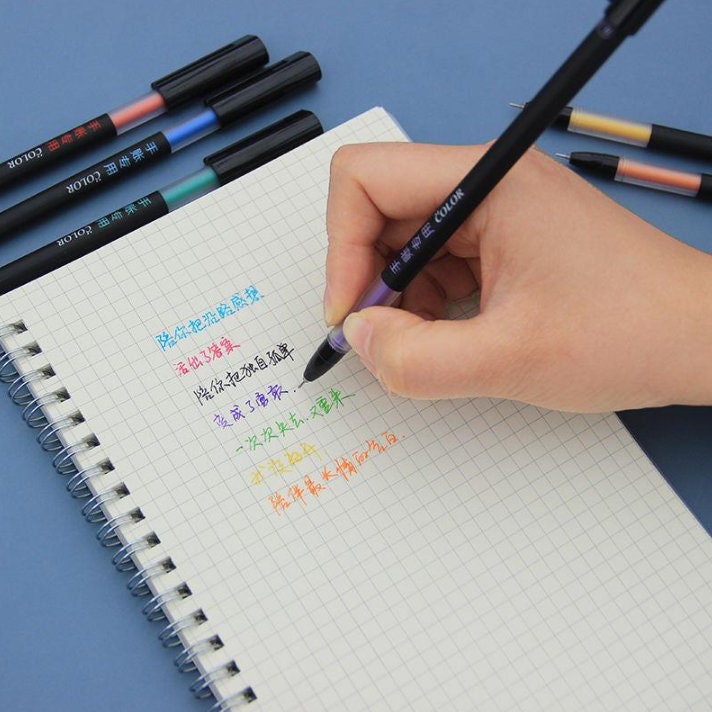 手帐专用 COLOR
手帐专用 COLOR
手帐专用 COLOR
手帐专用 COLOR
陪你把沿路感想
活出了答案
陪你把独自孤单
变成了勇敢.
一次次失去,又重来
我没
陪伴最长情的告白.